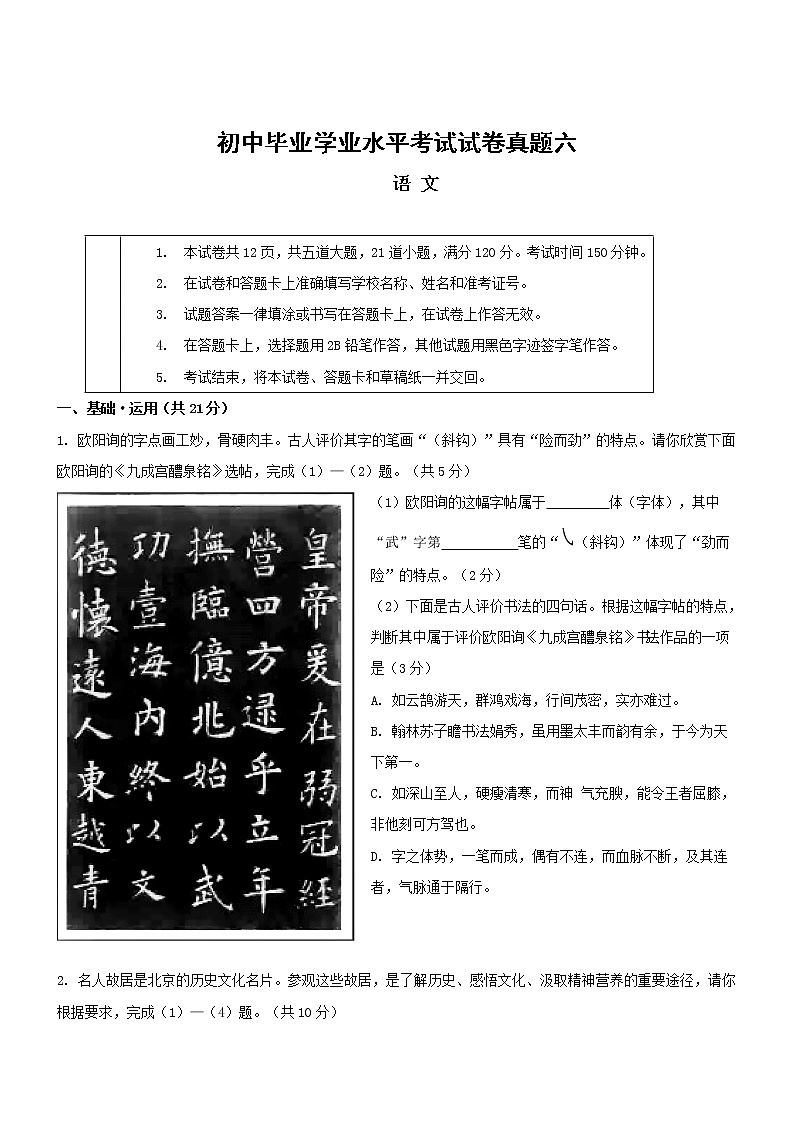 初中毕业学业水平考试试卷真题六
语 文
1. 本试卷共12页，共五道大题，21道小题，满分120分。考试时间150分钟。
2. 在试卷和答题卡上准确填写学校名称、姓名和准考证号。
3. 试题答案一律填涂或书写在答题卡上，在试卷上作答无效。
4. 在答题卡上，选择题用2B铅笔作答，其他试题用黑色字迹签字笔作答。
5. 考试结束，将本试卷、答题卡和草稿纸一并交回。
一、基础·运用（共21分）
1. 欧阳询的字点画工妙，骨硬肉丰。古人评价其字的笔画“（斜钩）”具有“险而劲”的特点。请你欣赏下面
欧阳询的《九成宫醴泉铭》选帖，完成（1）—（2）题。（共5分）
皇帝爰在弱冠經
營四方逯乎立年
撫臨億兆始以武
功壹海内終以文
德懷遠人東越青
（1）欧阳询的这幅字帖属于_________体（字体），其中
“武”字第___________笔的“㇂（斜钩）”体现了“劲而
险”的特点。（2分）
（2）下面是古人评价书法的四句话。根据这幅字帖的特点，
判断其中属于评价欧阳询《九成宫醴泉铭》书法作品的一项
是（3分）
A. 如云鹄游天，群鸿戏海，行间茂密，实亦难过。
B. 翰林苏子瞻书法娟秀，虽用墨太丰而韵有余，于今为天
下第一。
C. 如深山至人，硬瘦清寒，而神 气充腴，能令王者屈膝，
非他刻可方驾也。
D. 字之体势，一笔而成，偶有不连，而血脉不断，及其连
者，气脉通于隔行。
2. 名人故居是北京的历史文化名片。参观这些故居，是了解历史、感悟文化、汲取精神营养的重要途径，请你
根据要求，完成（1）—（4）题。（共10分）